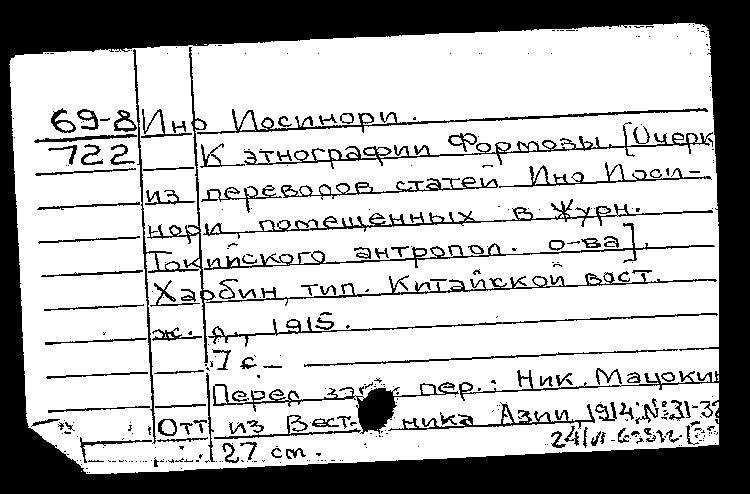 69-8 Ино Иосинори.
722 К этнографии Формозы. [Очерк
из переводов статей Ино Иоси-
нори, помещенных в журн.
Токийского антропол. о-ва].
Харбин, тип. Китайской вост.
ж. д., 1915.
7 с.
Перед пер.: Ник. Мацокин
Отт. из Вестника Азии, 1914, № 31-32
27 см.